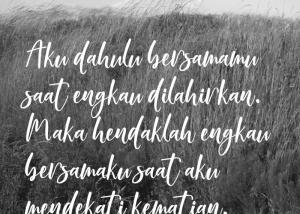 Aku dahulu bersamamu
saat engkau dilahirkan.
Maka hendaklah engkau
bersamaku saat aku
mendekati kematian.